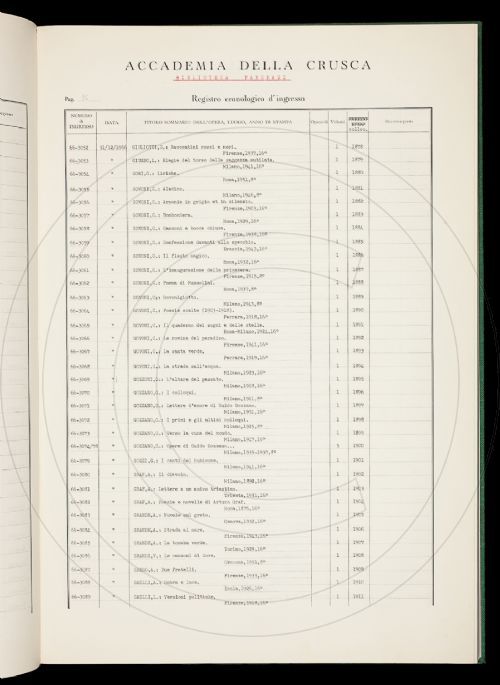 ACCADEMIA DELLA CRUSCA
BIBLIOTECA PANCRAZI
Pag.
Registro cronologico d'ingresso
NUMERO di INGRESSO DATA TITOLO SOMMARIO DELL'OPERA, LUOGO, ANNO DI STAMPA Opuscoli Volumi colloc.
66-3052 31/12/1966 GIULIOTTI,D.: Raccontini rossi e neri. 1 1878
Firenze,1937,16°
66-3053 " 1 1879
Milano,1941,16°
66-3054 " GORI,G.: Liriche. 1 1880
Roma,1954,8°
66-3055 " GOVONI,C.: Aladino. 1 1881
Milano,1946,8°
66-3056 " GOVONI,C.: Armonia in grigio et in silenzio. 1 1882
Firenze,1903,16°
66-3057 " GOVONI,C.: Bomboniera. 1 1883
Roma,1929,16°
66-3058 " GOVONI,C.: Canzoni a bocca chiusa. 1 1884
Firenze,1938,16°
66-3059 " GOVONI,C.: Confessione davanti allo specchio. 1 1885
Brescia,1943,16°
66-3060 " GOVONI,C.: Il flauto magico. 1 1886
Roma,1932,16°
66-3061 " GOVONI,C.: L'inaugurazione della primavera. 1 1887
Firenze,1915,8°
66-3062 " GOVONI,C.: Poema di Mussolini. 1 1888
Roma,1937,8°
66-3063 " GOVONI,C.: Govonigiotto. 1 1889
Milano,1943,8°
66-3064 " GOVONI,C.: Poesie scelte (1903-1918). 1 1890
Ferrara,1918,16°
66-3065 " GOVONI,C.: Il quaderno dei sogni e delle stelle. 1 1891
Roma-Milano,1924,16°
66-3066 " GOVONI,C.: La rovina del paradiso. 1 1892
Firenze,1941,16°
66-3067 " GOVONI,C.: La santa verde. 1 1893
Ferrara,1919,16°
66-3068 " GOVONI,C.: La strada sull'acqua. 1 1894
Milano,1923,16°
66-3069 " GOZZANO,G.: L'altare del passato. 1 1895
Milano,1918,16°
66-3070 " GOZZANO,G.: I colloqui. 1 1896
Milano,1911,8°
66-3071 " GOZZANO,G.: Lettere d'amore di Guido Gozzano. 1 1897
Milano,1951,16°
66-3072 " GOZZANO,G.: I primi e gli ultimi colloqui. 1 1898
66-3073 " GOZZANO,G.: Verso la cuna del mondo. 1 1899
Milano,1917,16°
" GOZZANO,G.: Opere di Guido Gozzano... 5 1900
66-3079 " 1 1901
Milano,1941,16°
66-3080 " GRAF,A.: Il diavolo. 1 1902
Milano,1890,16°
66-3081 " GRAF,A.: Lettere a un amico triestino. 1 1903
66-3082 " GRAF,A.: Poesie e novelle di Arturo Graf. 1 1904
Roma,1876,16°
66-3083 " GRANDE,A.: Nuvole sul greto. 1 1905
Genova,1932,16°
66-3084 " GRANDE,A.: Strada al mare. 1 1906
Firenze,1943,16°
66-3085 " GRANDE,A.: La tomba verde. 1 1907
Torino,1929,16°
66-3086 " 1 1908
66-3087 " 1 1909
66-3088 " 1 1910
66-3089 " 1 1911